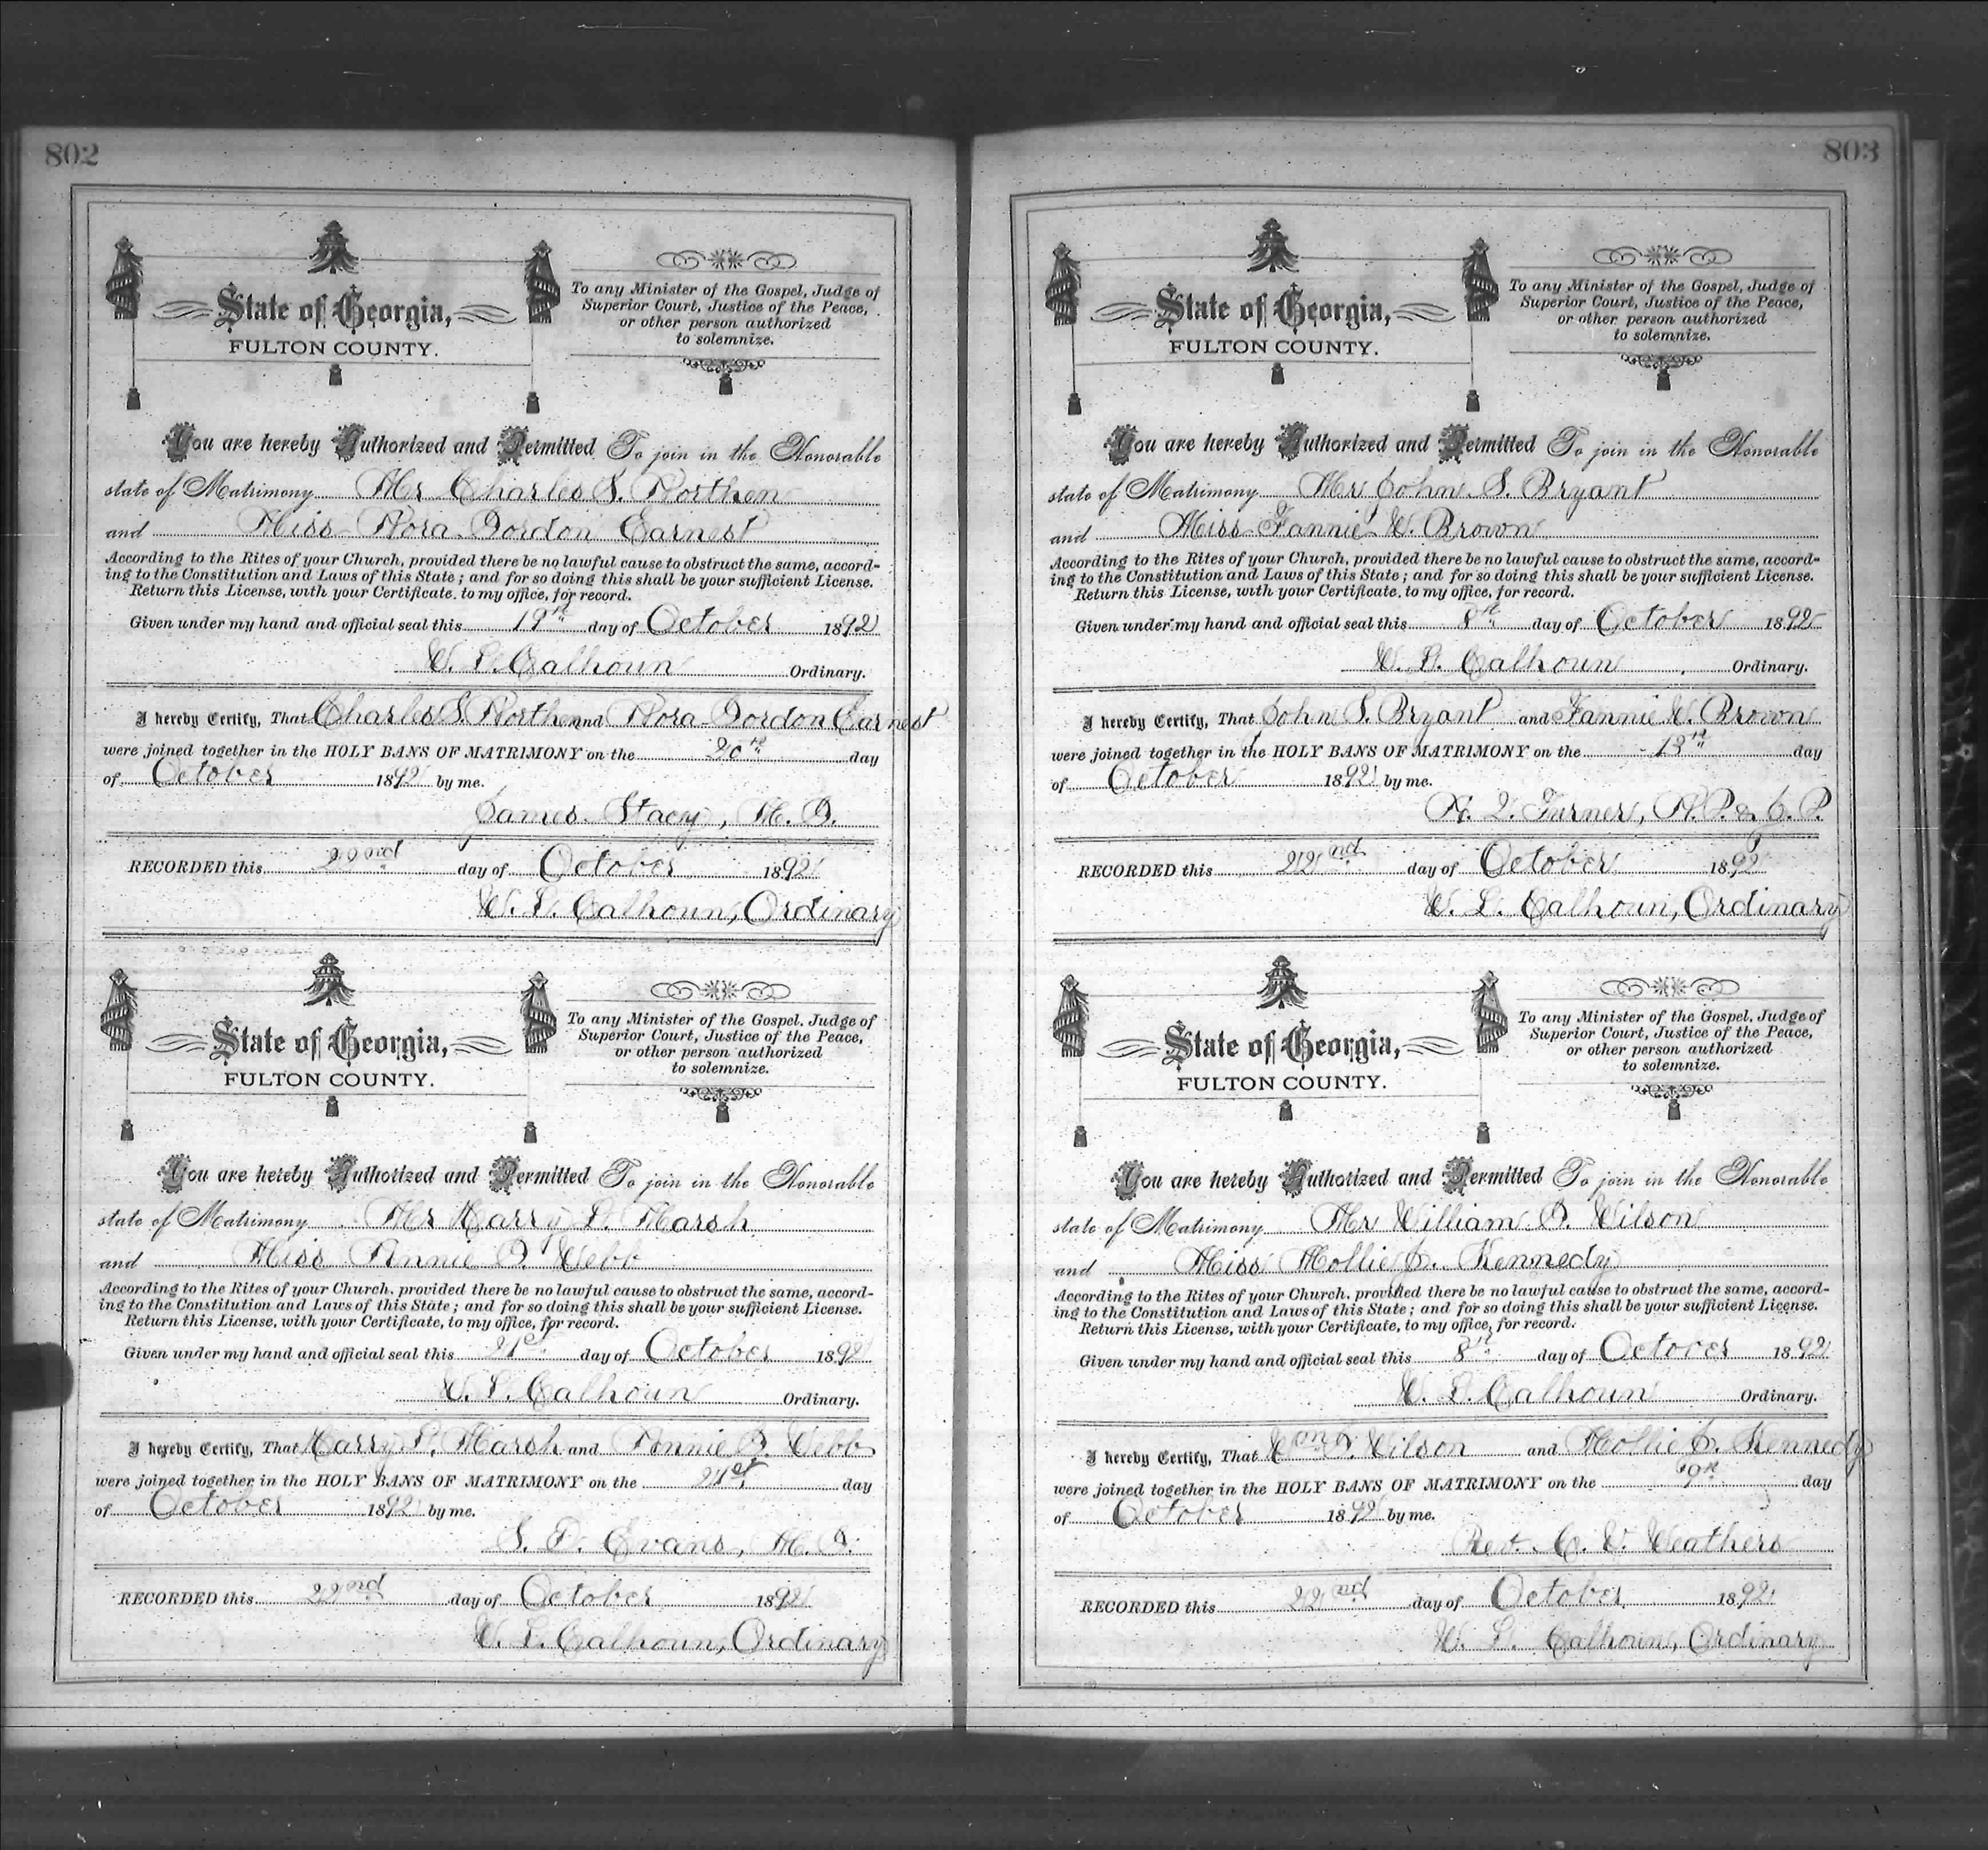 802
State of Georgia,
FULTON COUNTY.
To any Minister of the Gospel, Judge of
Superior Court, Justice of the Peace,
or other person authorized
to solemnize.
You are hereby Authorized and Permitted To join in the Honorable
state of Matrimony Mr Charles S. Northen
and Miss Nora Gordon Earnest
According to the Rites of your Church, provided there be no lawful cause to obstruct the same, accord-
ing to the Constitution and Laws of this State; and for so doing this shall be your sufficient License.
Return this License, with your Certificate, to my office, for record.
Given under my hand and official seal this 19th day of October 1892
W. L. Calhoun Ordinary.
I hereby Certify, That Charles S. Northen and Nora Gordon Earnest
were joined together in the HOLY BANS OF MATRIMONY on the 20th day
of October 1892 by me.
James Stacy, M. G.
RECORDED this 22nd day of October 1892
W. L. Calhoun, Ordinary
State of Georgia,
FULTON COUNTY.
To any Minister of the Gospel, Judge of
Superior Court, Justice of the Peace,
or other person authorized
to solemnize.
You are hereby Authorized and Permitted To join in the Honorable
state of Matrimony Mr Harry L. Marsh
and Miss Annie Webb
According to the Rites of your Church, provided there be no lawful cause to obstruct the same, accord-
ing to the Constitution and Laws of this State; and for so doing this shall be your sufficient License.
Return this License, with your Certificate, to my office, for record.
Given under my hand and official seal this 21st day of October 1892
W. L. Calhoun Ordinary.
I hereby Certify, That Harry L. Marsh and Annie Webb
were joined together in the HOLY BANS OF MATRIMONY on the 21st day
of October 1892 by me.
Evans, M. G.
RECORDED this 22nd day of October 1892
W. L. Calhoun, Ordinary
803
State of Georgia,
FULTON COUNTY.
To any Minister of the Gospel, Judge of
Superior Court, Justice of the Peace,
or other person authorized
to solemnize.
You are hereby Authorized and Permitted To join in the Honorable
state of Matrimony Mr John S. Bryant
and Miss Fannie W. Brown
According to the Rites of your Church, provided there be no lawful cause to obstruct the same, accord-
ing to the Constitution and Laws of this State; and for so doing this shall be your sufficient License.
Return this License, with your Certificate, to my office, for record.
Given under my hand and official seal this 8th day of October 1892
W. L. Calhoun Ordinary.
I hereby Certify, That John S. Bryant and Fannie W. Brown
were joined together in the HOLY BANS OF MATRIMONY on the 13th day
of October 1892 by me.
Turner, N. P. & J. P.
RECORDED this 22nd day of October 1892
W. L. Calhoun, Ordinary
State of Georgia,
FULTON COUNTY.
To any Minister of the Gospel, Judge of
Superior Court, Justice of the Peace,
or other person authorized
to solemnize.
You are hereby Authorized and Permitted To join in the Honorable
state of Matrimony Mr William Wilson
and Miss Mollie J. Kennedy
According to the Rites of your Church, provided there be no lawful cause to obstruct the same, accord-
ing to the Constitution and Laws of this State; and for so doing this shall be your sufficient License.
Return this License, with your Certificate, to my office, for record.
Given under my hand and official seal this 8th day of October 1892
W. L. Calhoun Ordinary.
I hereby Certify, That Wm Wilson and Mollie J. Kennedy
were joined together in the HOLY BANS OF MATRIMONY on the 9th day
of October 1892 by me.
Rev. C. V. Weathers
RECORDED this 22nd day of October 1892
W. L. Calhoun, Ordinary